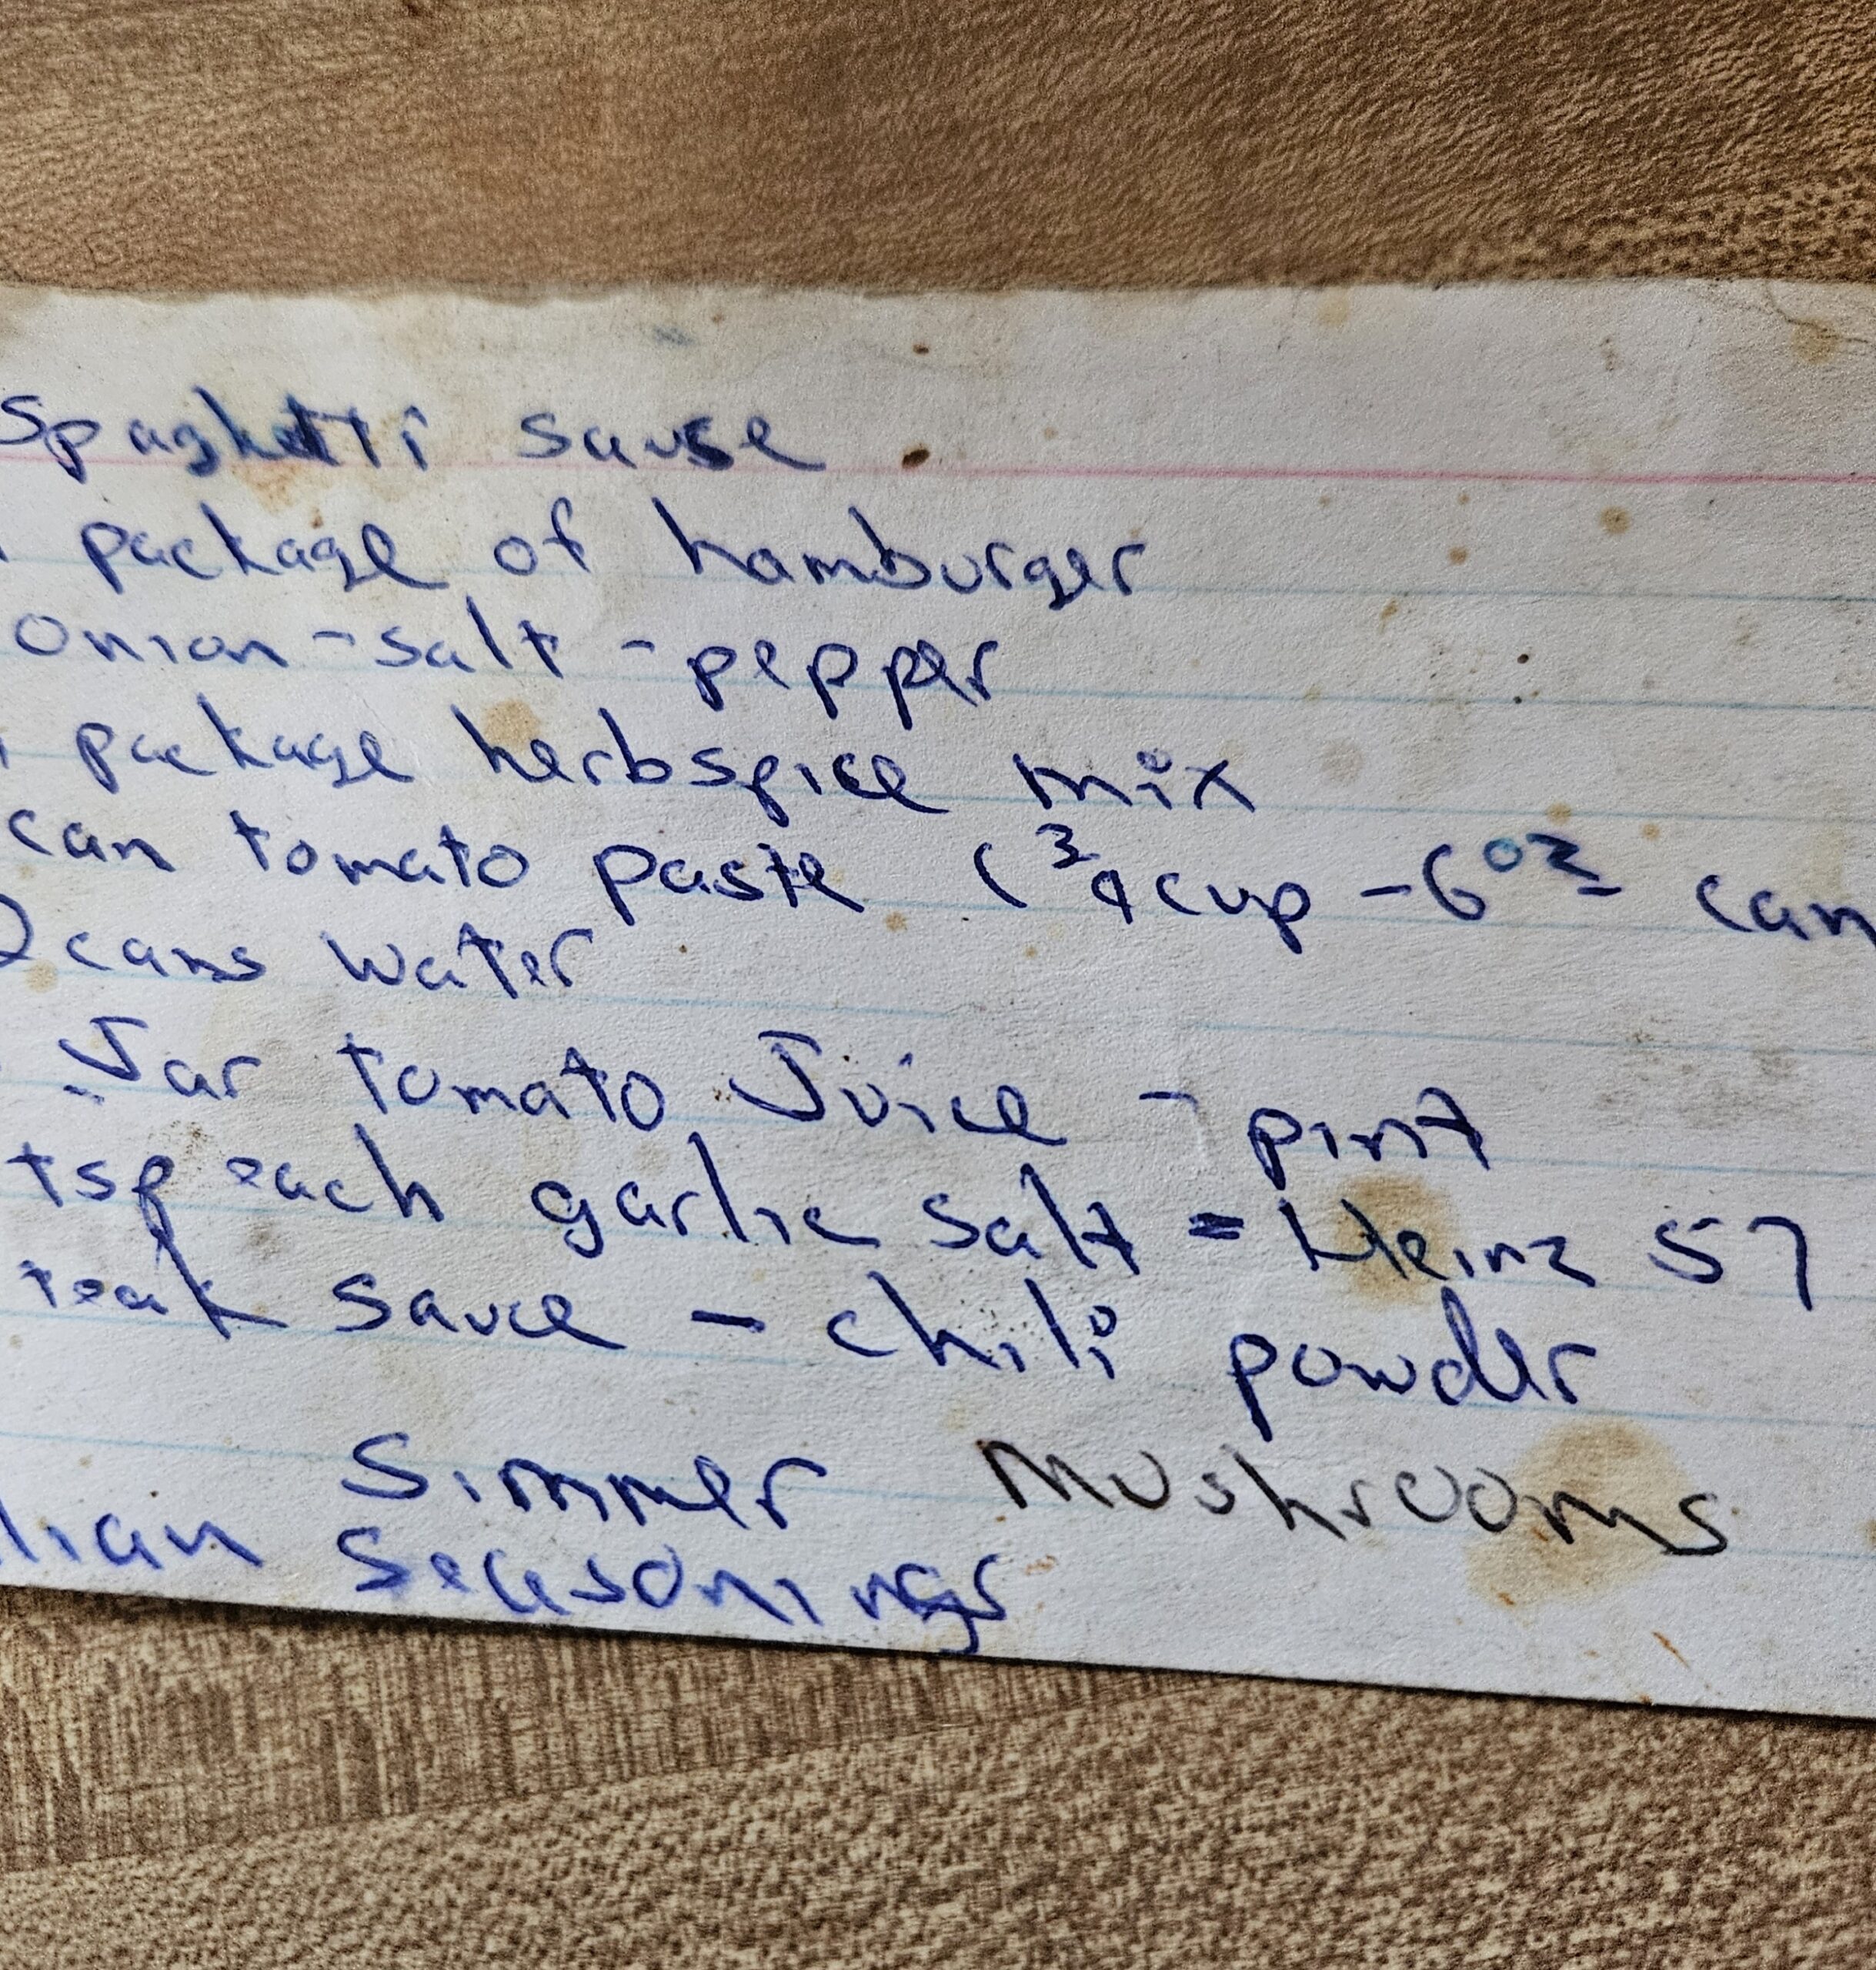 Spaghetti sause
package of hamburger
onion - salt - pepper
package herbspice mix
can tomato paste ( 3/4 cup - 6 oz can
2 cans water
Jar tomato Juice - pint
tsp each garlic salt = Heinz 57
teak sauce - chili powder
Simmer mushrooms
lian seasonings